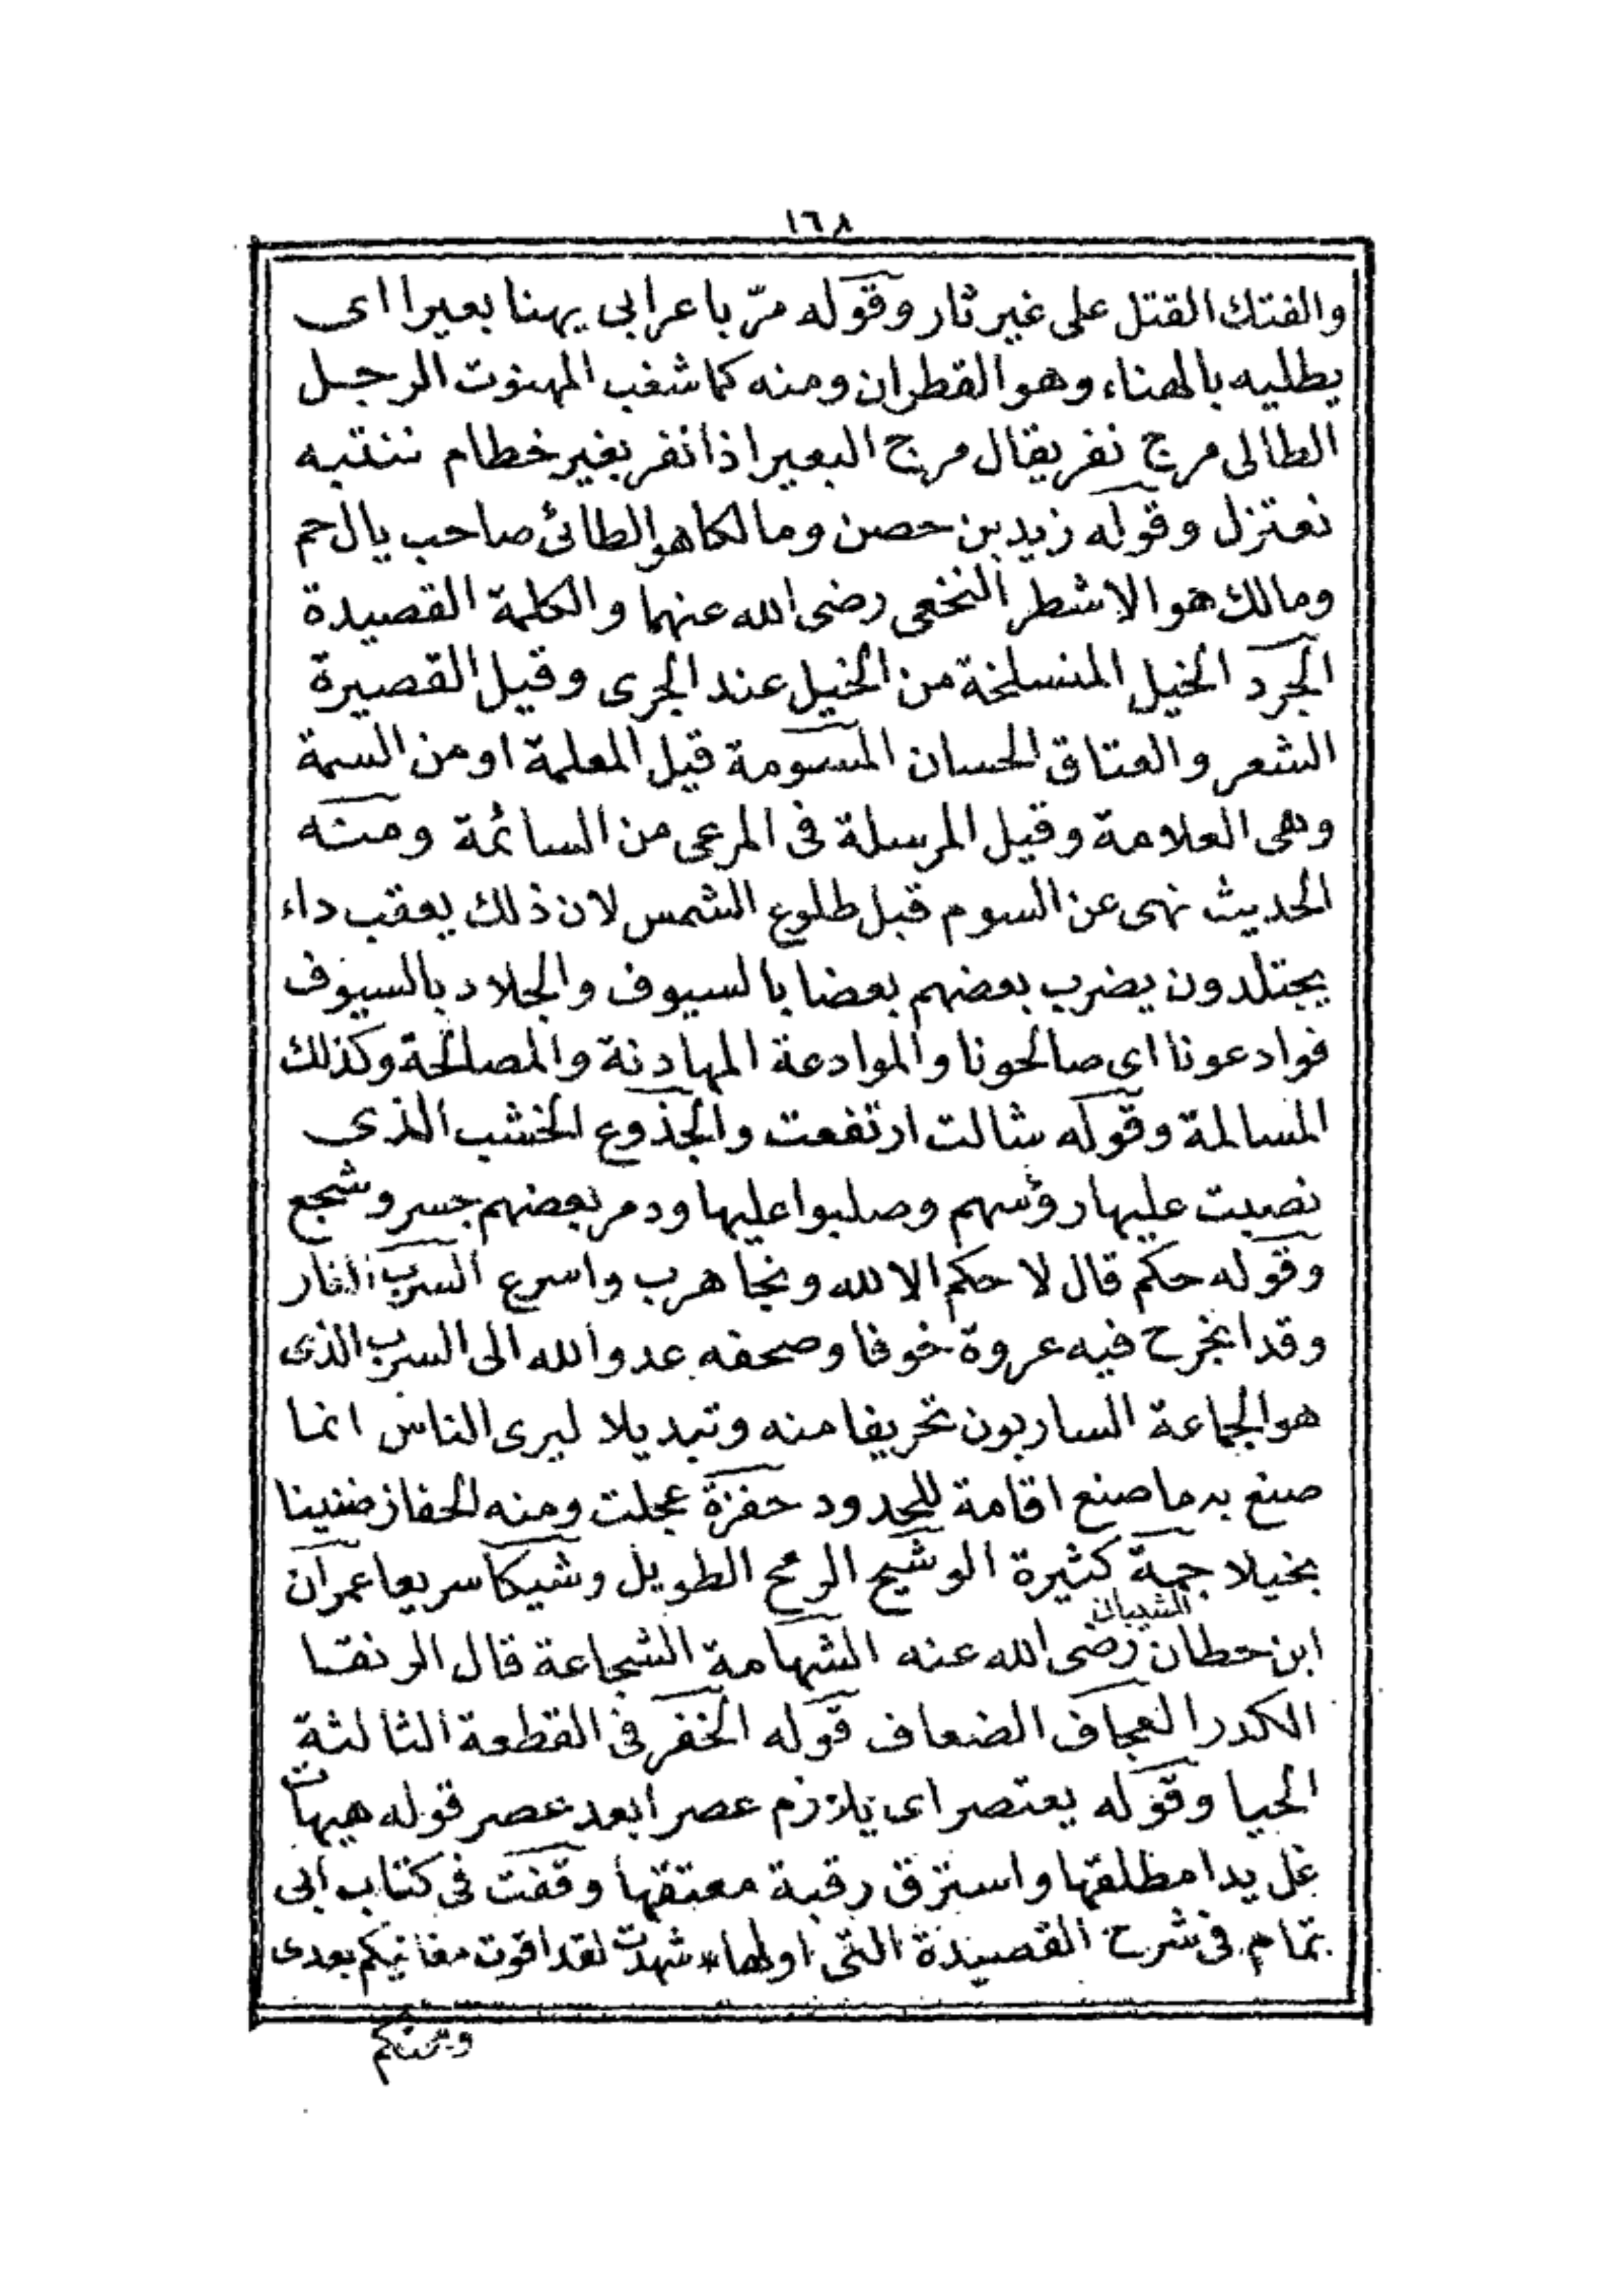 ١٦٨
والفتك القتل على غير ثار وقوله مرّ باعرابى يهنا بعيرا اى
يطليه بالهناء وهو القطران ومنه كما شغب المهنوت الرجل
الطالى مرج نفر يقال مرج البعير اذا نفر بغير خطام ننتبه
نعتزل وقوله زيد بن حصن ومالكا هو الطائى صاحب يال حم
ومالك هو الاشطر النخعى رضى الله عنهما والكلمة القصيدة
الجرد الخيل المنسلخة من الخيل عند الجرى وقيل القصيرة
الشعر والعتاق الحسان المسومة قيل المعلمة او من السمة
وهى العلامة وقيل المرسلة فى المرعى من السائمة ومنه
الحديث نهى عن السوم قبل طلوع الشمس لان ذلك يعقب داء
يجتلدون يضرب بعضهم بعضا بالسيوف والجلاد بالسيوف
فوادعونا اى صالحونا والموادعة المهادنة والمصالحة وكذلك
المسالمة وقوله شالت ارتفعت والجذوع الخشب الذى
نصبت عليها رؤسهم وصلبوا عليها ودمر بعضهم جسر وشجع
وقوله حكم قال لا حكم الا لله ونجا هرب واسرع السرب الغار
وقد انجرح فيه عروة خوفا وصحفه عدو الله الى السرب الذى
هو الجماعة الساربون تحريفا منه وتبديلا ليرى الناس انما
صنع به ما صنع اقامة للحدود حفزة عجلت ومنه الحفاز ضنينا
بخيلا جمة كثيرة الوشيج الرمح الطويل وشيكا سريعا عمران
الشيبانى
ابن حطان رضى الله عنه الشهامة الشجاعة قال الرنقا
الكدر العجاف الضعاف قوله الخفر فى القطعة الثالثة
الحيا وقوله يعتصر اى يلازم عصرا بعد عصر قوله هيهات
غل يدا مظلقها واسترق رقبة معتقها وقفت فى كتاب ابى
تمام فى شرح القصيدة التى اولها * شهدت لقد اقوت مغانيكم بعدى